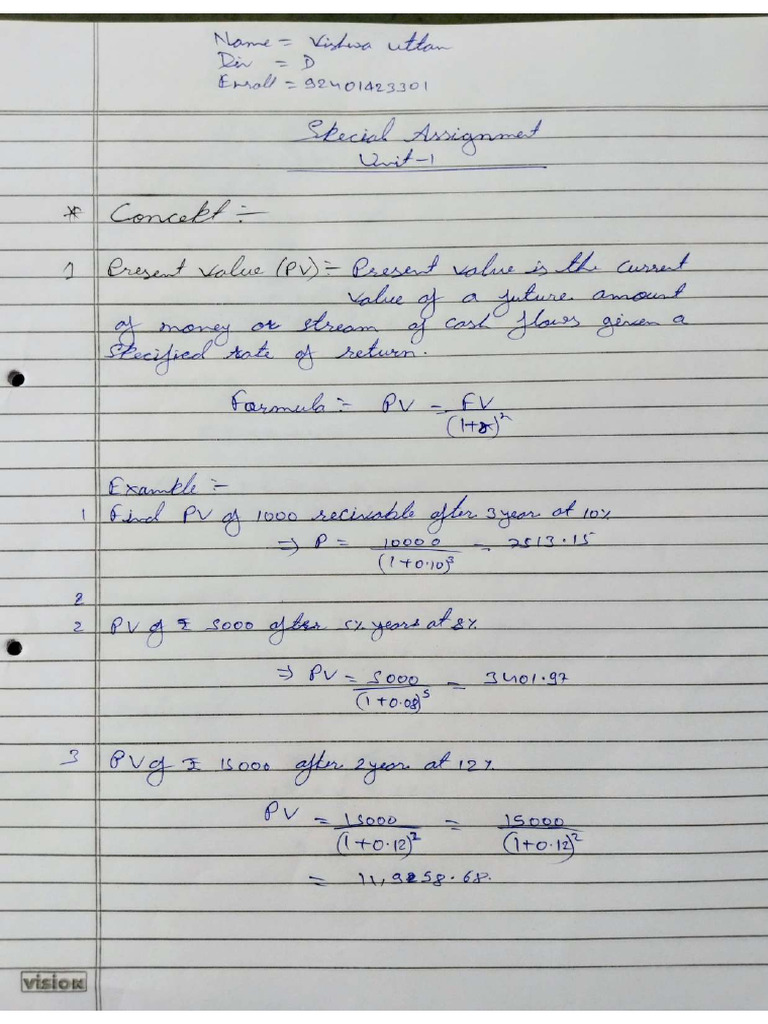 Name = Vishwa Uttam
Div = D
Enroll = 92401423301
Special Assignment
Unit-1
* Concept :-
1 Present value (PV) :- Present value is the current
value of a future amount
of money or stream of cash flows given a
specified rate of return.
Formula :- PV = FV / (1+r)^n
Example :-
1 Find PV of 1000 recivable after 3 year at 10%
⇒ P = 10000 / (1+0.10)^3 = 2513.15
2
2 PV of ₹ 5000 after 5% years at 8%
⇒ PV = 5000 / (1+0.08)^5 = 3401.97
3 PV of ₹ 15000 after 2 year at 12%
PV = 15000 / (1+0.12)^2 = 15000 / (1+0.12)^2
=
vision